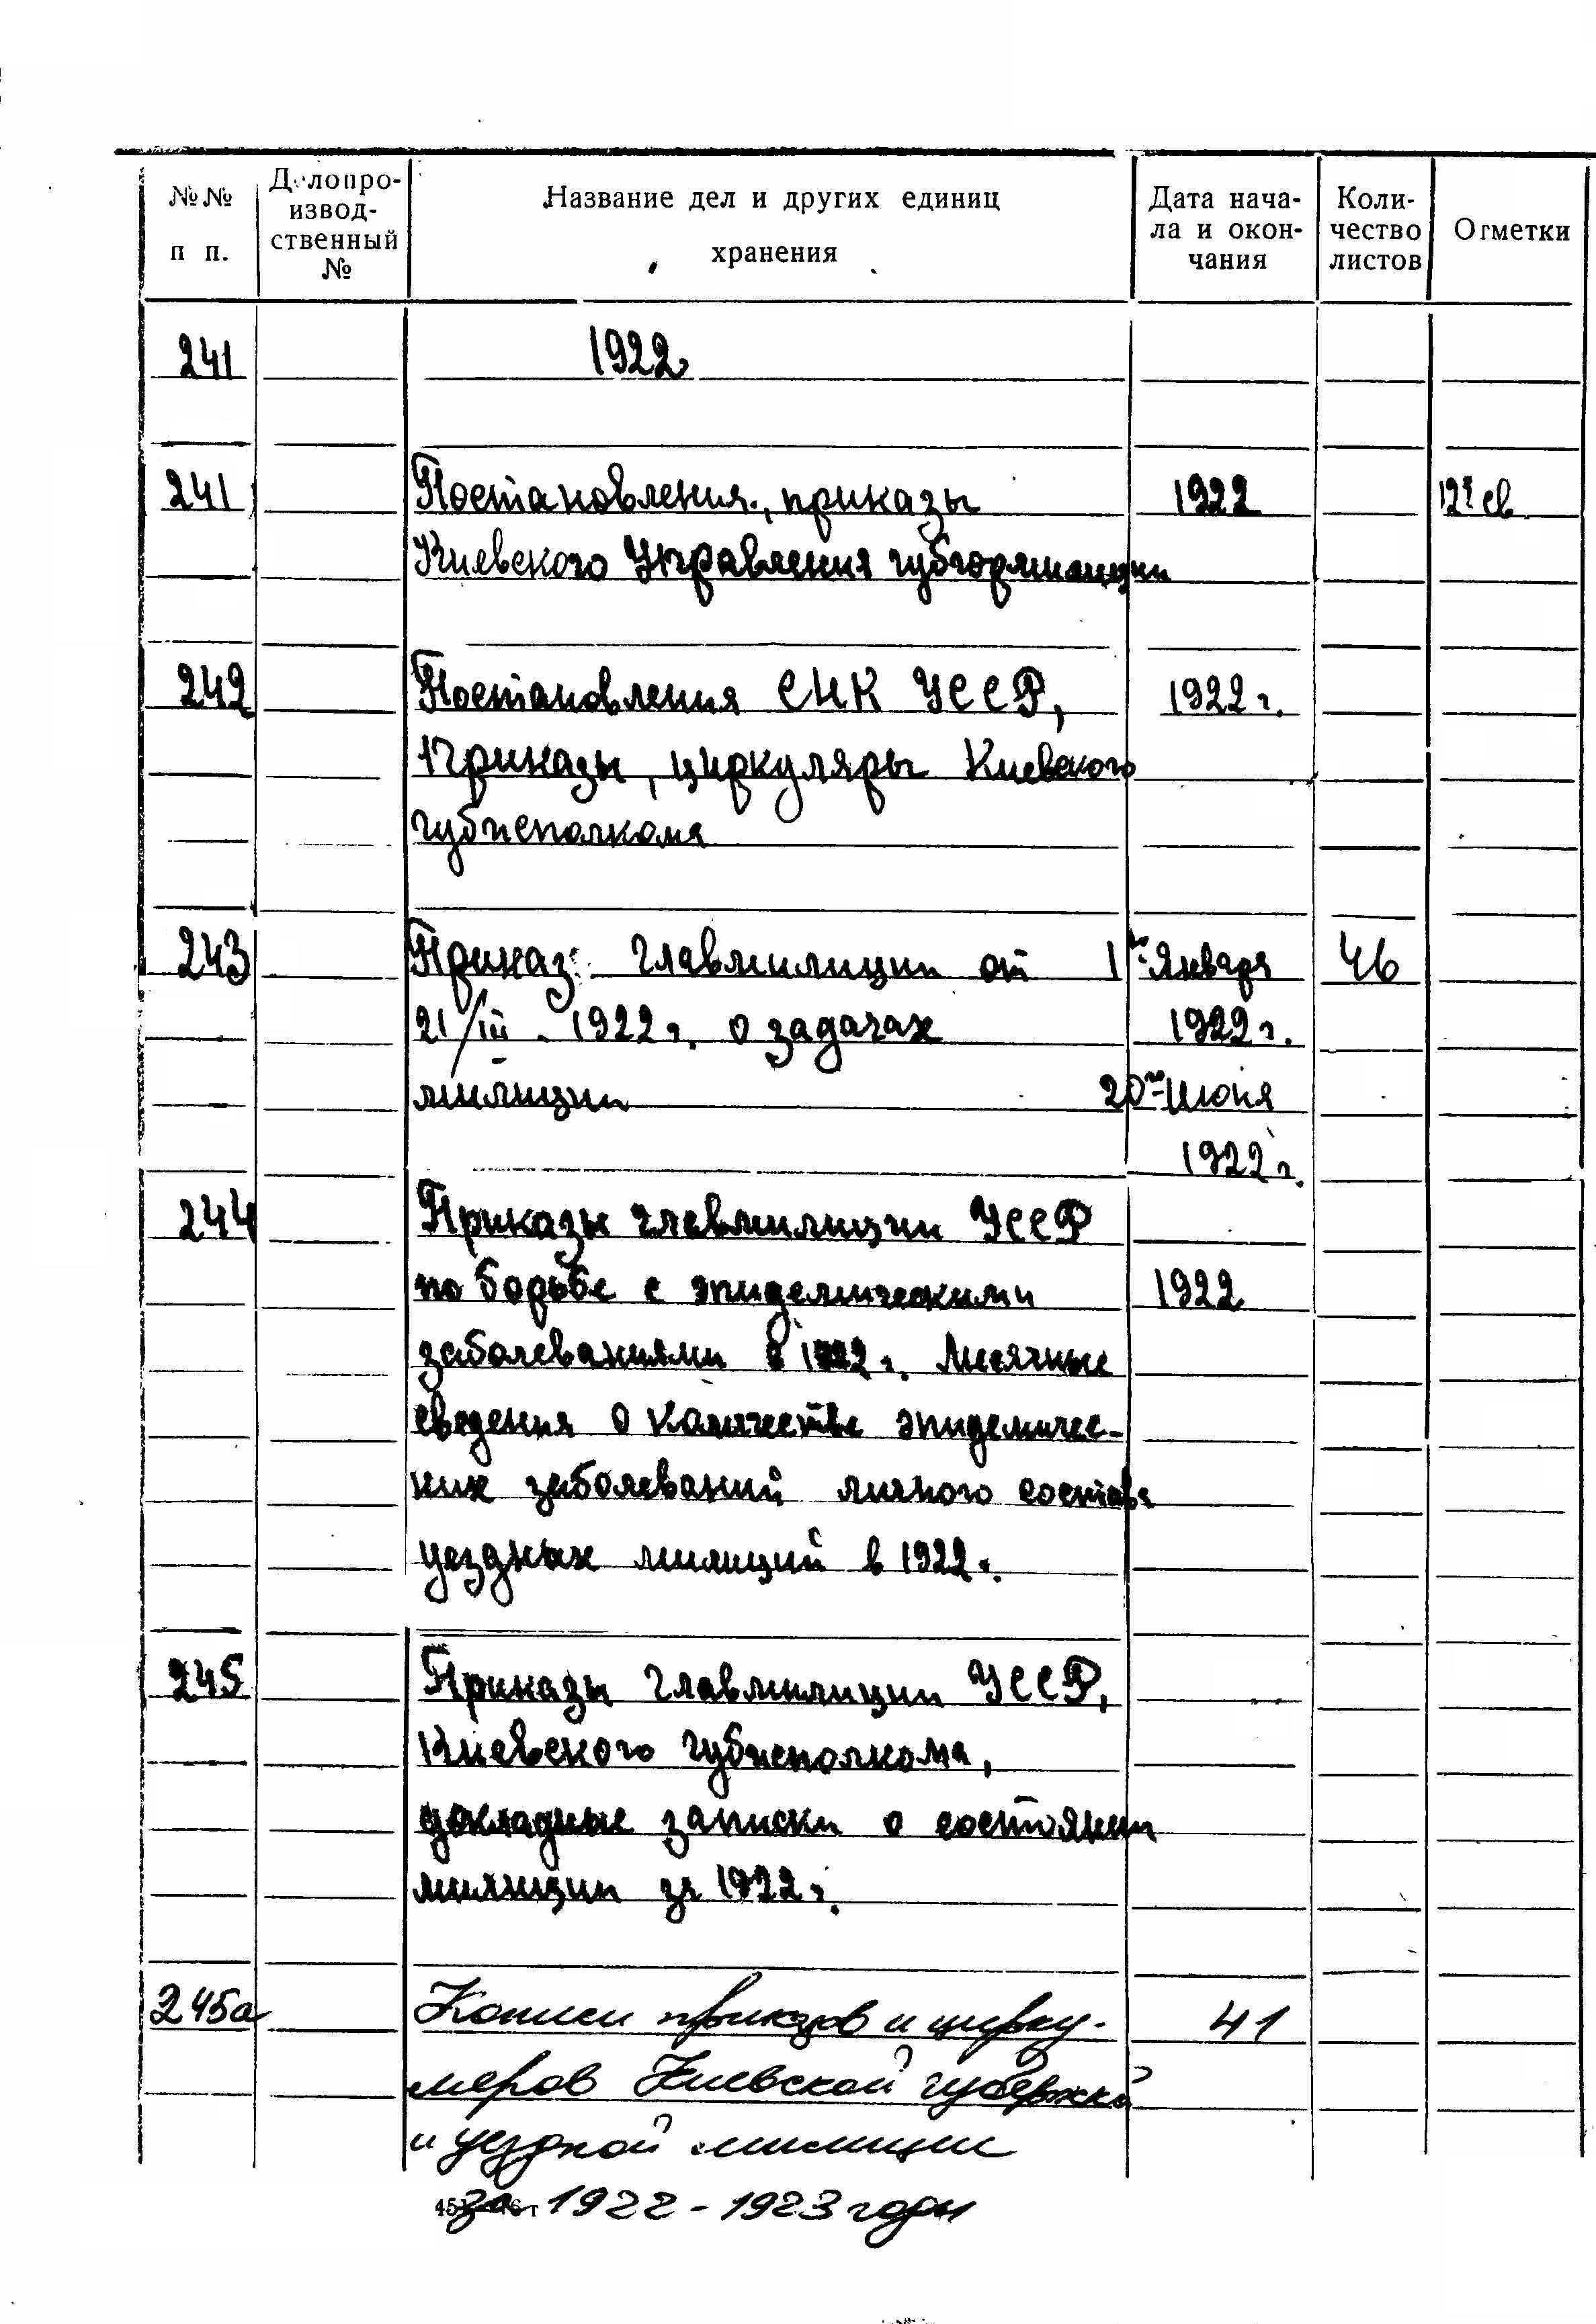 №№ п п.
Делопро-
извод-
ственный
№
Название дел и других единиц
хранения
Дата нача-
ла и окон-
чания
Коли-
чество
листов
Отметки
241 1922
241 Постановления, приказы 1922 св
Киевского Управления губгормилиции
242 Постановления СНК УССР, 1922 г.
Приказы, циркуляры Киевского
губисполкома
243 Приказ главмилиции от 1го Января 46
21/III. 1922 г. о задачах 1922 г.
милиции 20го Июня
1922 г.
244 Приказы главмилиции УССР
по борьбе с эпидемическими 1922
заболеваниями в 1922 г. Месячные
сведения о количестве эпидемичес-
ких заболеваний личного состава
уездных милиций в 1922 г.
245 Приказы Главмилиции УССР,
Киевского губисполкома,
докладные записки о состоянии
милиции за 1922 г.
245а Копии приказов и цирку- 41
ляров Киевской губернской
и уездной милиции
за 1922-1923 годы